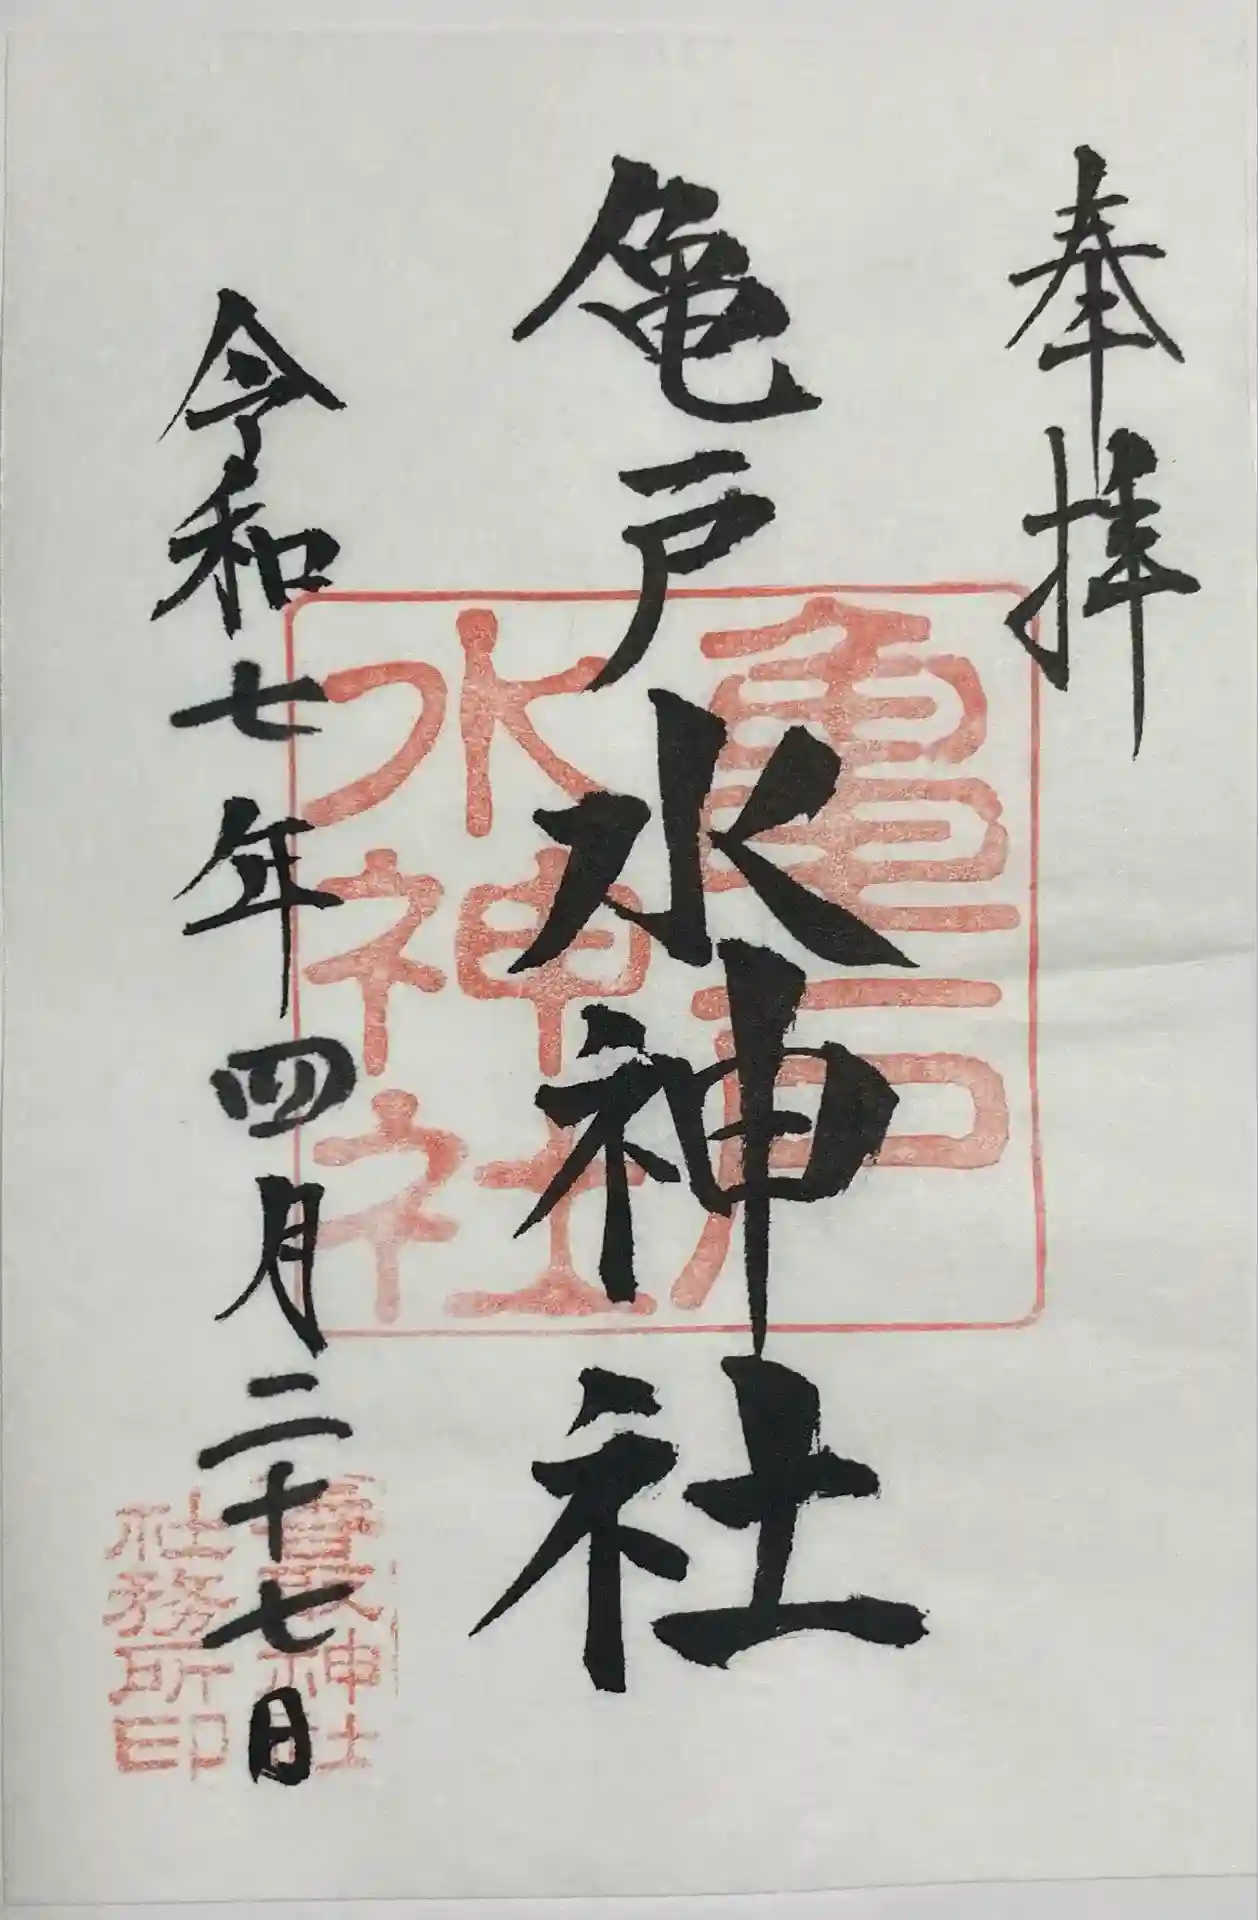 奉拝
亀戸水神社
令和七年四月二十七日
亀戸
水神社
香取神社
社務所印